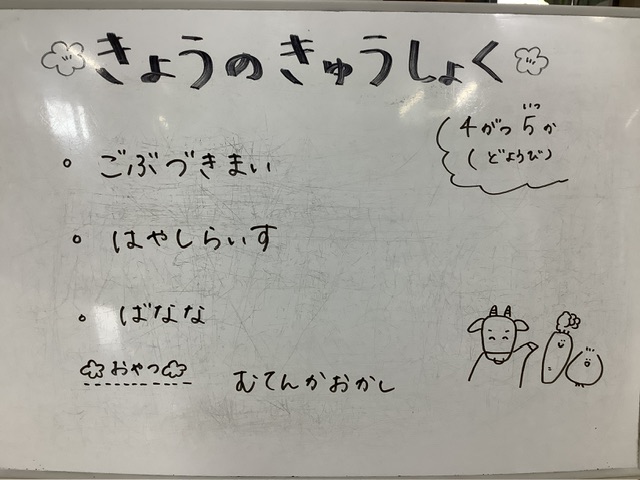 きょうのきゅうしょく
4がつ5か
いつ
(どようび)
。ごぶづきまい
。はやしらいす
。ばなな
おやつ
むてんかおかし